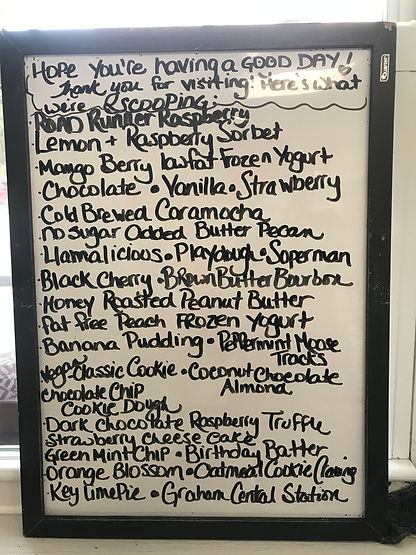 Hope you're having a GOOD DAY!
Thank you for visiting! Here's what
we're scooping:
Road Runner Raspberry
Lemon + Raspberry Sorbet
·Mango Berry lowfat Frozen Yogurt
·Chocolate • Vanilla • Strawberry
·Cold Brewed Caramocha
·no sugar Added Butter Pecan
·Llamalicious • Playdough • Superman
·Black Cherry • Brown Butter Bourbon
·Honey Roasted Peanut Butter
·Fat Free Peach Frozen Yogurt
·Banana Pudding • Peppermint Moose
Tracks
Vegan Classic Cookie • Coconut Chocolate
Almond
Chocolate Chip
Cookie Dough
·Dark Chocolate Raspberry Truffle
Strawberry Cheese Cake
Green Mint Chip • Birthday Batter
·Orange Blossom • Oatmeal Cookie
·Key Lime Pie • Graham Central Station
Quartet